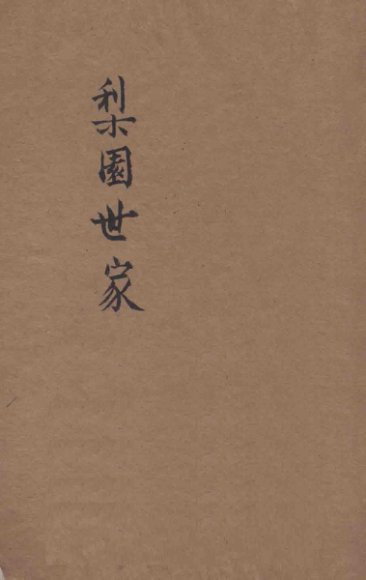 梨園世家